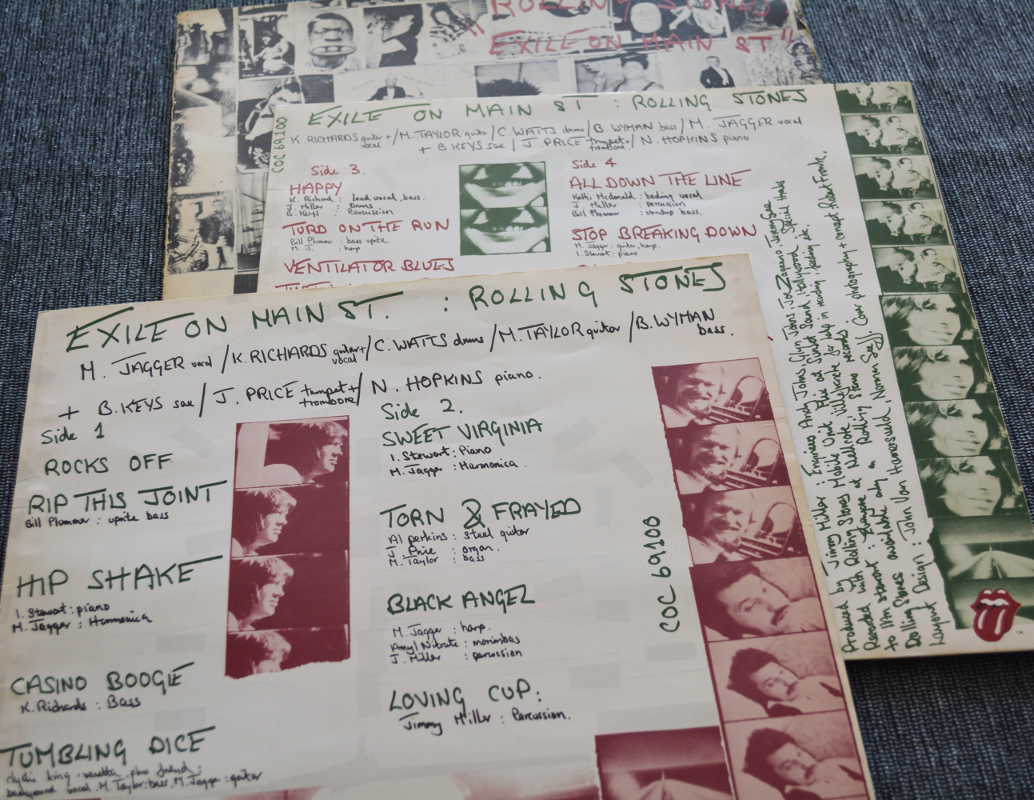 "ROLLING STONES
EXILE ON MAIN ST"
EXILE ON MAIN ST : ROLLING STONES
K. RICHARDS guitar + vocal / M. TAYLOR guitar / C. WATTS drums / B. WYMAN bass / M. JAGGER vocal
+ B. KEYS sax / J. PRICE trumpet + trombone / N. HOPKINS piano
COC 69100
Side 3.
HAPPY
K. Richard : lead vocal, bass.
J. Miller : drums
B. Keys : Percussion
TURD ON THE RUN
Bill Plummer : bass uprite
M. J. : harp
VENTILATOR BLUES
Side 4
ALL DOWN THE LINE
Kathi Mcdonald : backing vocal
J. Miller : percussion
Bill Plummer : bass.
STOP BREAKING DOWN
M. Jagger : guitar, harp.
I. Stewart : piano
Produced by Jimmy Miller : Engineers Andy Johns, Glyn Johns, Joe Zagarino, Jeremy Gee
Recorded with Rolling Stones Mobile Unit Plus at Sunset Sound, Hollywood. Special thanks
to Ian Stewart :
Rolling Stones
Layout Design : John Van Hamersveld, Norman Seeff. Cover photography + concept Robert Frank.
EXILE ON MAIN ST. : ROLLING STONES
M. JAGGER vocal / K. RICHARDS guitar + vocal / C. WATTS drums / M. TAYLOR guitar / B. WYMAN bass.
+ B. KEYS sax / J. PRICE trumpet + trombone / N. HOPKINS piano.
Side 1
ROCKS OFF
RIP THIS JOINT
Bill Plummer : uprite bass
HIP SHAKE
I. Stewart : piano
M. Jagger : Harmonica
CASINO BOOGIE
K. Richards : Bass
TUMBLING DICE
background vocal. M. Taylor : bass. M. Jagger : guitar
Side 2.
SWEET VIRGINIA
I. Stewart : Piano
M. Jagger : Harmonica.
TORN & FRAYED
Al perkins : steel guitar
J. Price : organ.
M. Taylor : bass
BLACK ANGEL
M. Jagger : harp
Amyl Nitrate : marimbas
J. Miller : percussion
LOVING CUP :
Jimmy Miller : Percussion.
COC 69100